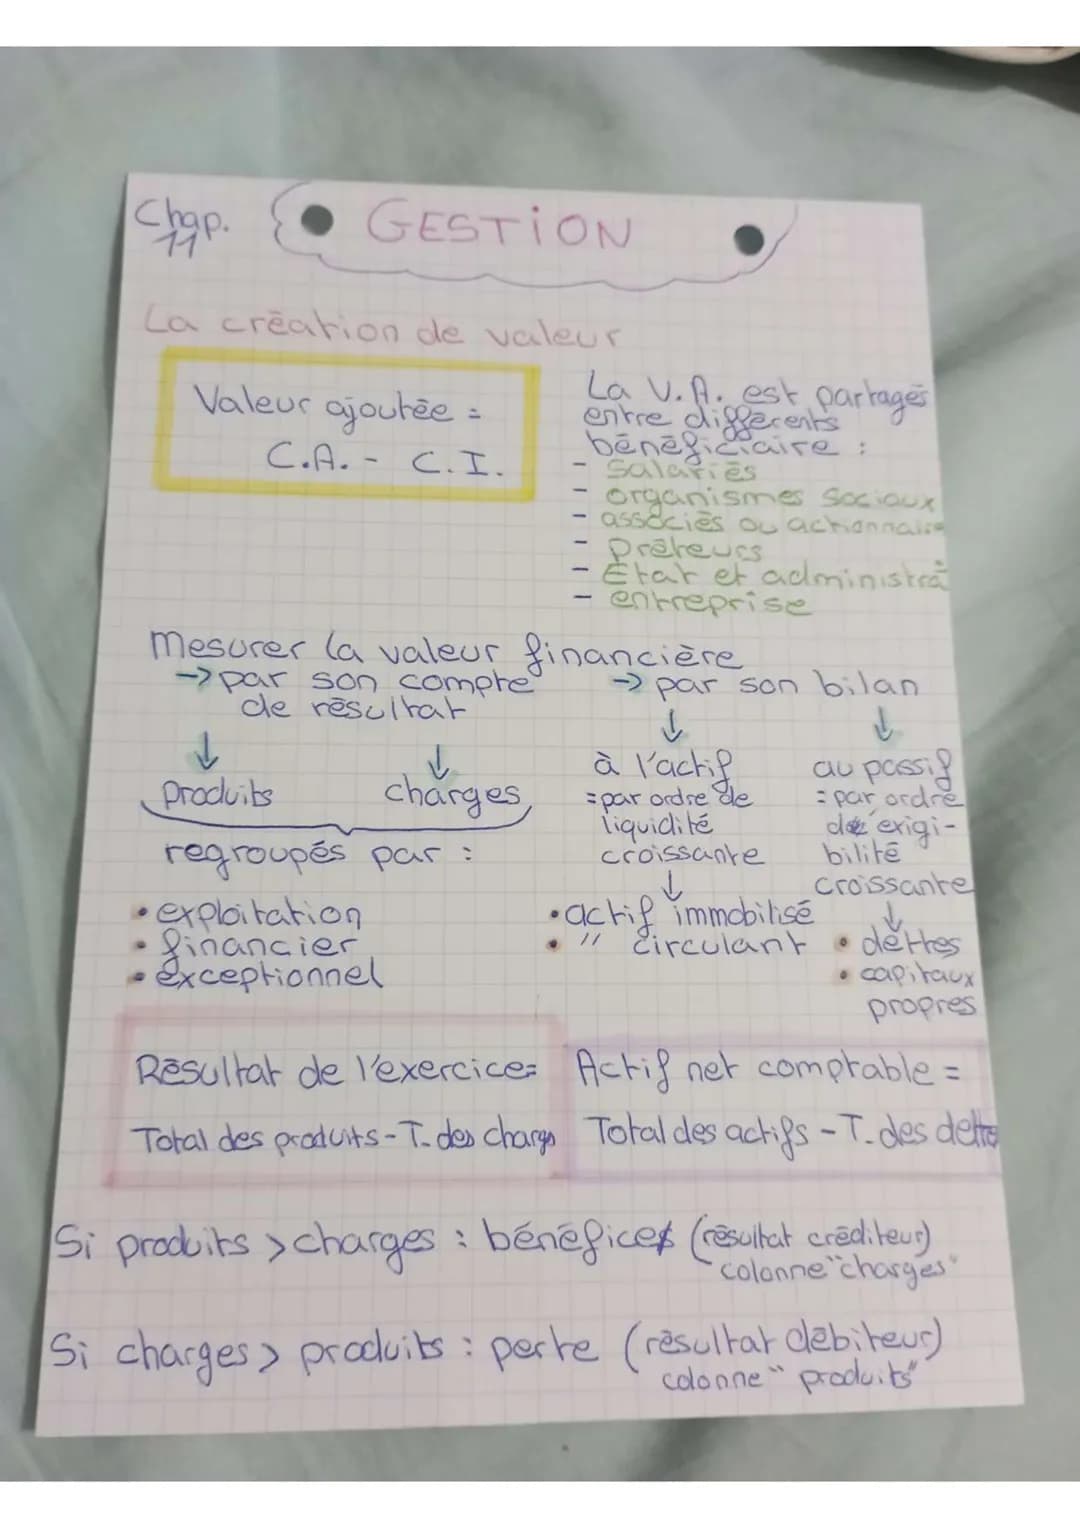 Chap. 11
GESTION
La création de valeur
Valeur ajoutée =
C.A. - C.I.
La V.A. est partagés
entre différents
bénéficiaire :
- Salariés
- organismes sociaux
- associés ou actionnaire
- Prêteurs
- État et administra
- entreprise
Mesurer la valeur financière
-> par son compte
de résultat
↓ ↓
Produits charges
regroupés par :
• exploitation
• financier
• exceptionnel
-> par son bilan
↓ ↓
à l'actif
= par ordre de
liquidité
croissante
↓
• actif immobilisé
• " circulant
au passif
= par ordre
d'exigi-
bilité
croissante
↓
• dettes
• capitaux
propres
Résultat de l'exercice=
Total des produits - T. des charges
Actif net comptable =
Total des actifs - T. des dettes
Si produits > charges : bénéfices (résultat créditeur)
colonne "charges"
Si charges > produits : perte (résultat débiteur)
colonne "produits"